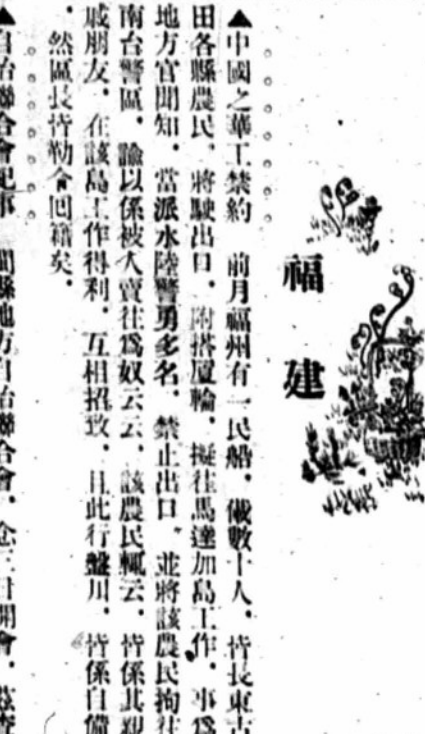 福建
▲中國之華工禁約　前月福州有一民船，儎數十人，皆長東古
田各縣農民，將駛出口，附搭厦輪，擬往馬達加島工作，事爲
地方官聞知，當派水陸警勇多名，禁止出口，並將該農民拘往
南台警區，諭以係被人賣往爲奴云云，該農民輒云，皆係其親
戚朋友，在該島工作得利，互相招致，且此行盤川，皆係自備
，然區長皆勒令回籍矣，
▲自治聯合會紀事　閩縣地方自治聯合會，念三日開會，茲